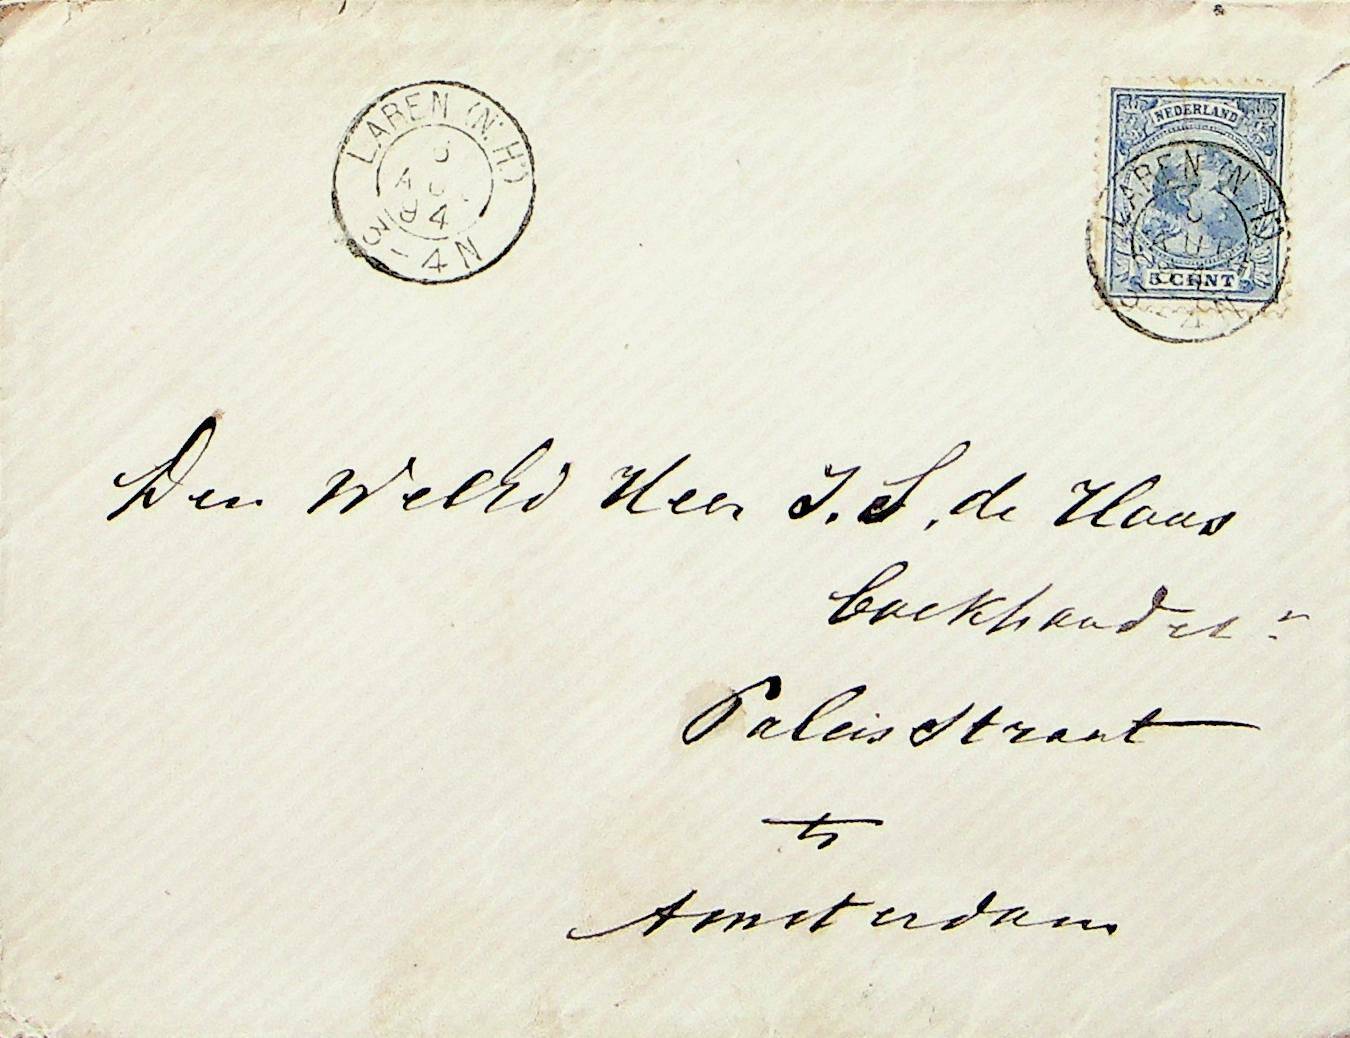 LAREN (N.H.)
AU
94
3-4N
NEDERLAND
LAREN (N.H.)
AUG
5 CENT
4N
Den WelEd Heer J. S. de Haas
boekhandelr
Paleisstraat
te
Amsterdam